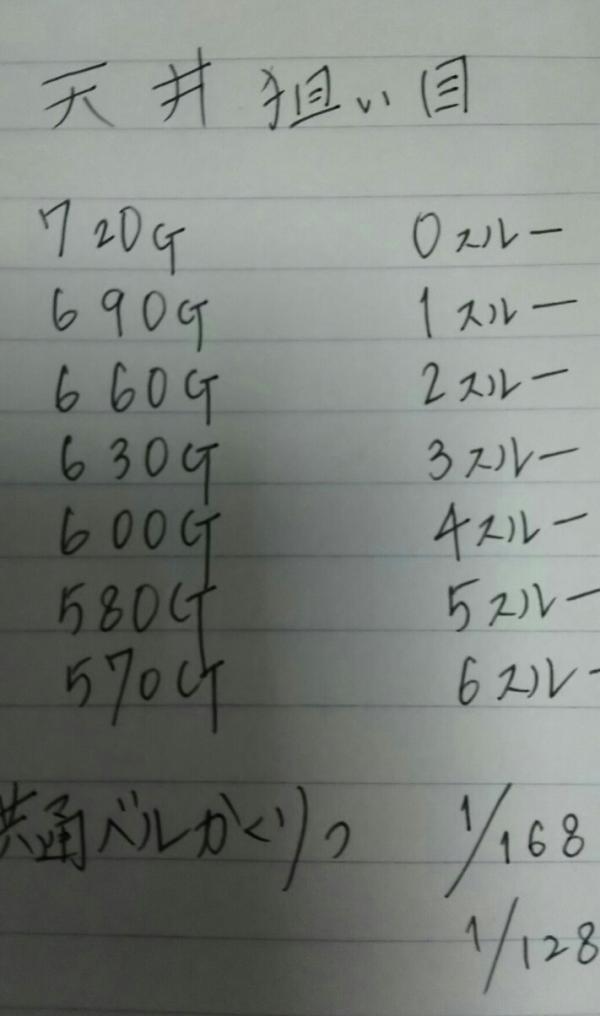 天井狙い目
720G 0スルー
690G 1スルー
660G 2スルー
630G 3スルー
600G 4スルー
580G 5スルー
570G 6スルー
共通ベルかくりつ 1/168
1/128